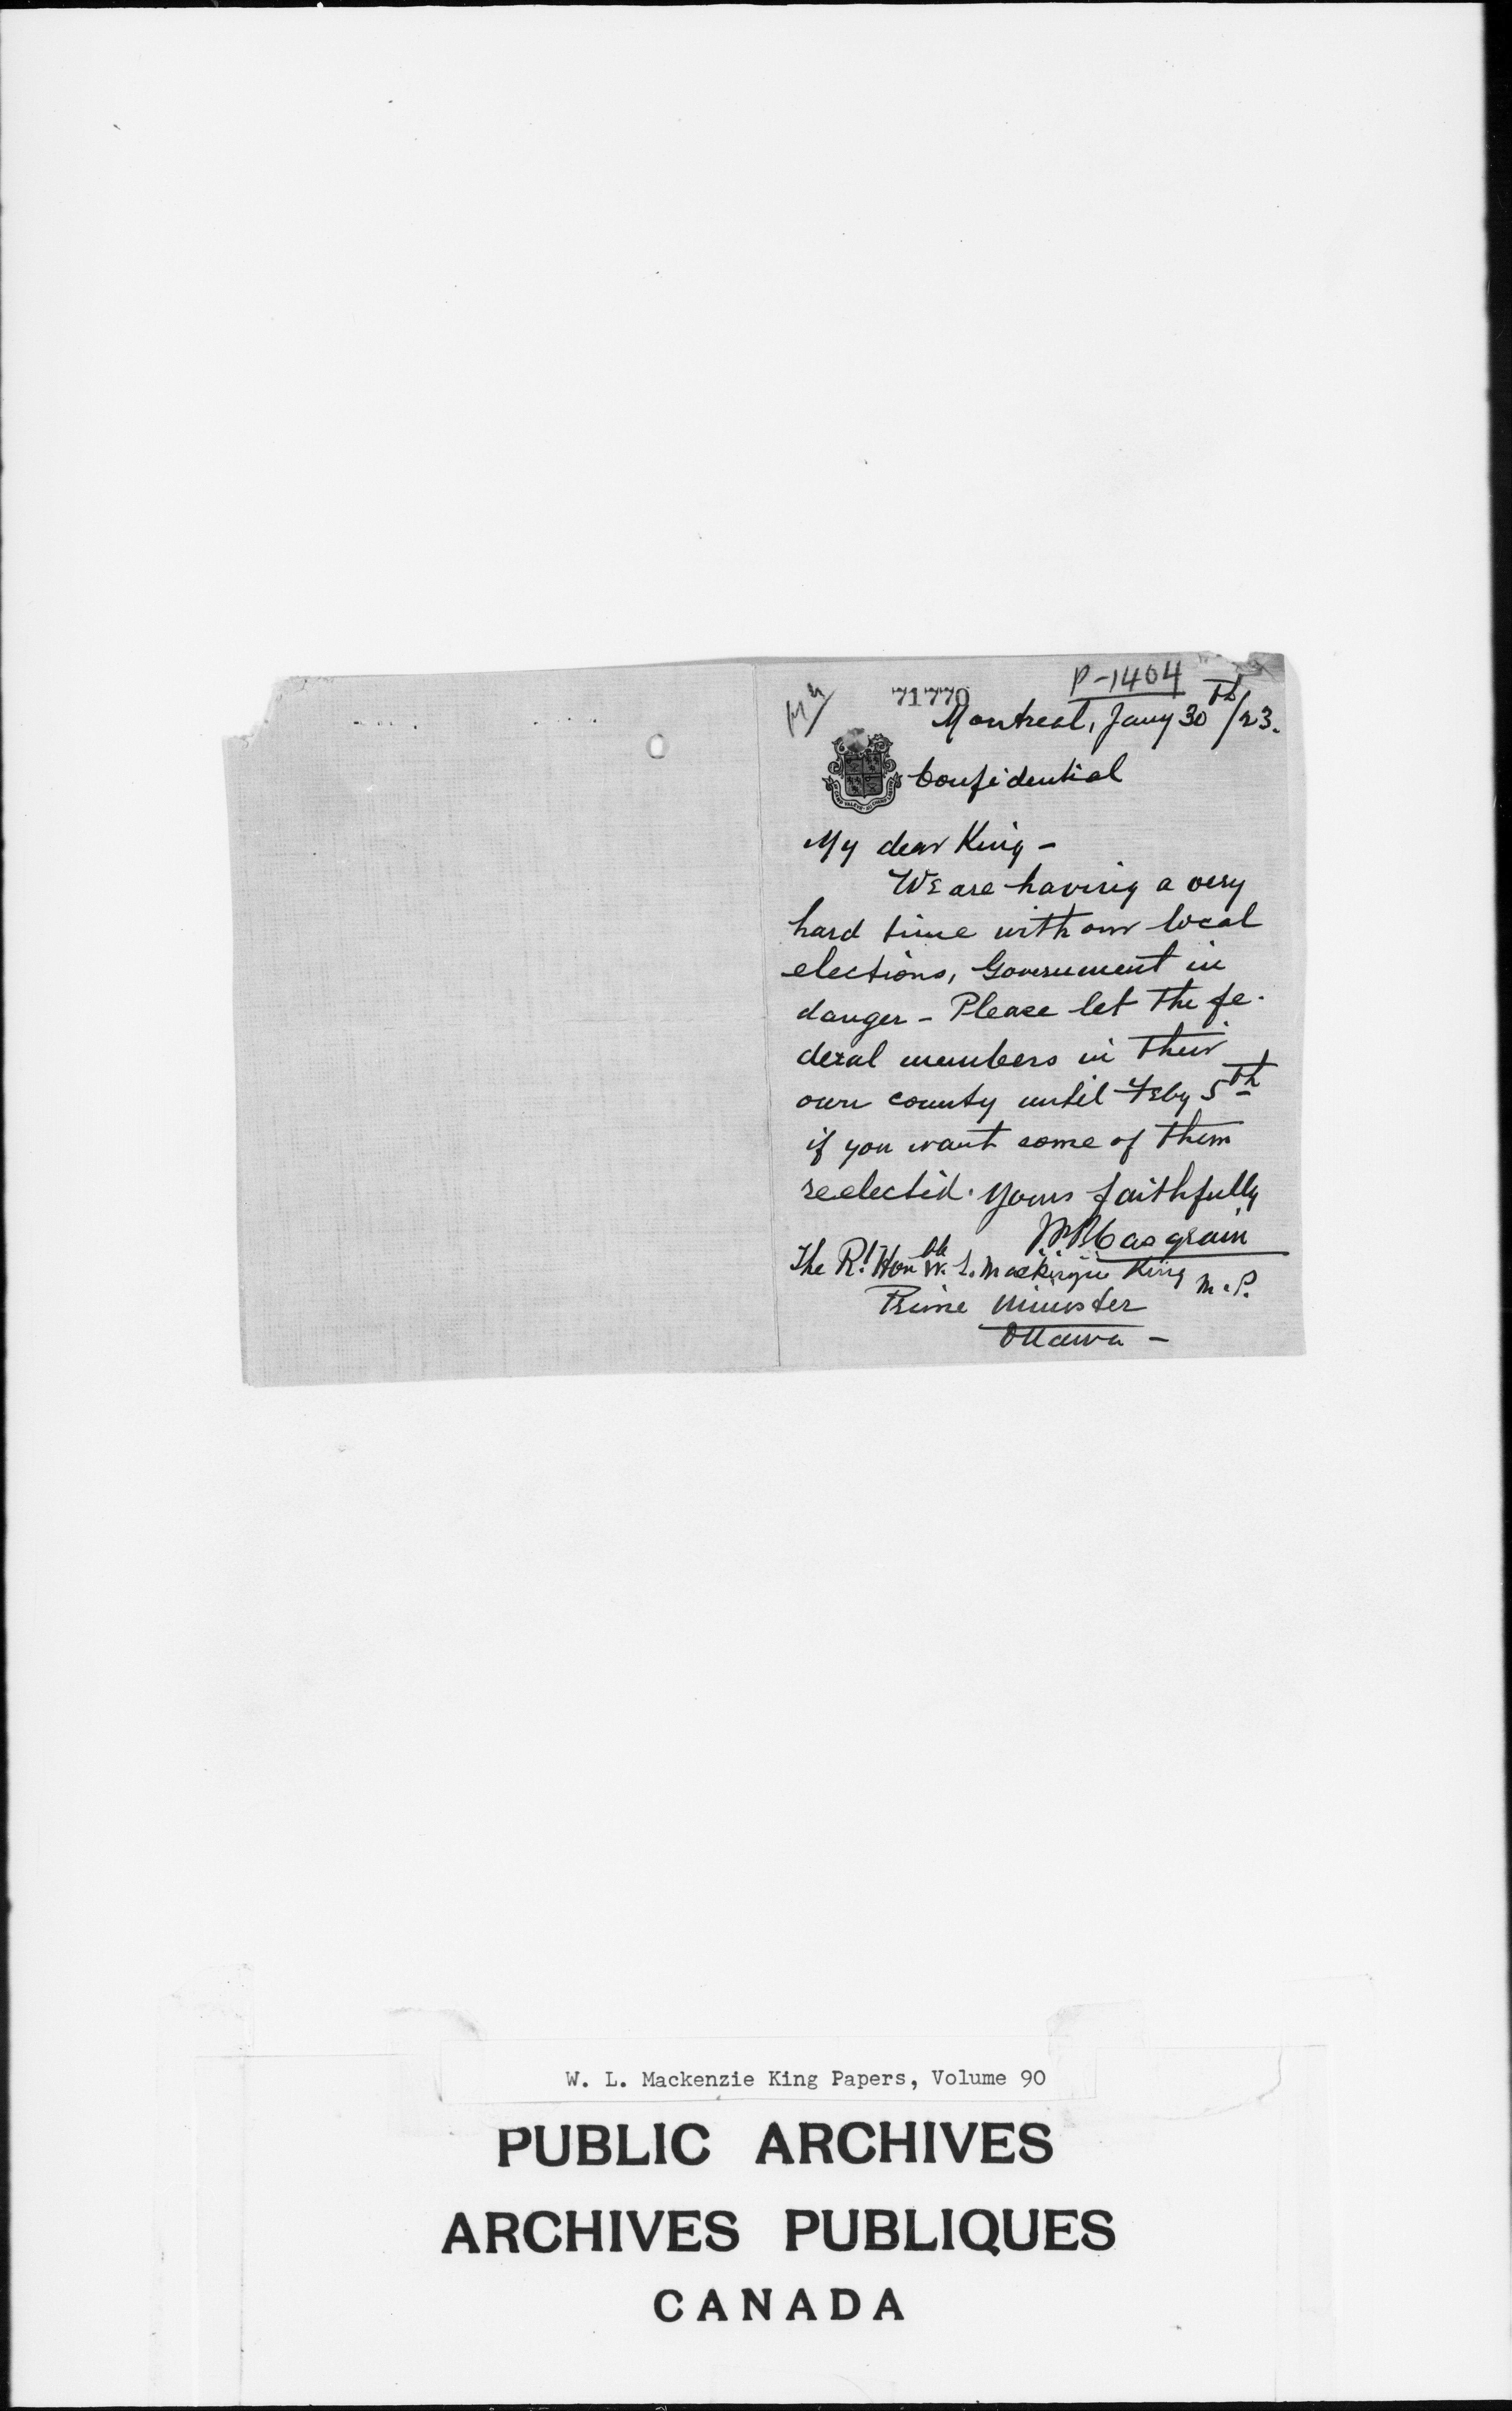 P-1404
71770
Montreal, Jany 30th/23.
Confidential
My dear King -
We are having a very
hard time with our local
elections, Government in
danger - Please let the fe-
deral members in their
own county until Feby 5th
if you want some of them
reelected. Yours faithfully
JPBCasgrain
The Rt Honble W. L. Mackenzie King M.P.
Prime Minister
Ottawa -
W. L. Mackenzie King Papers, Volume 90
PUBLIC ARCHIVES
ARCHIVES PUBLIQUES
CANADA